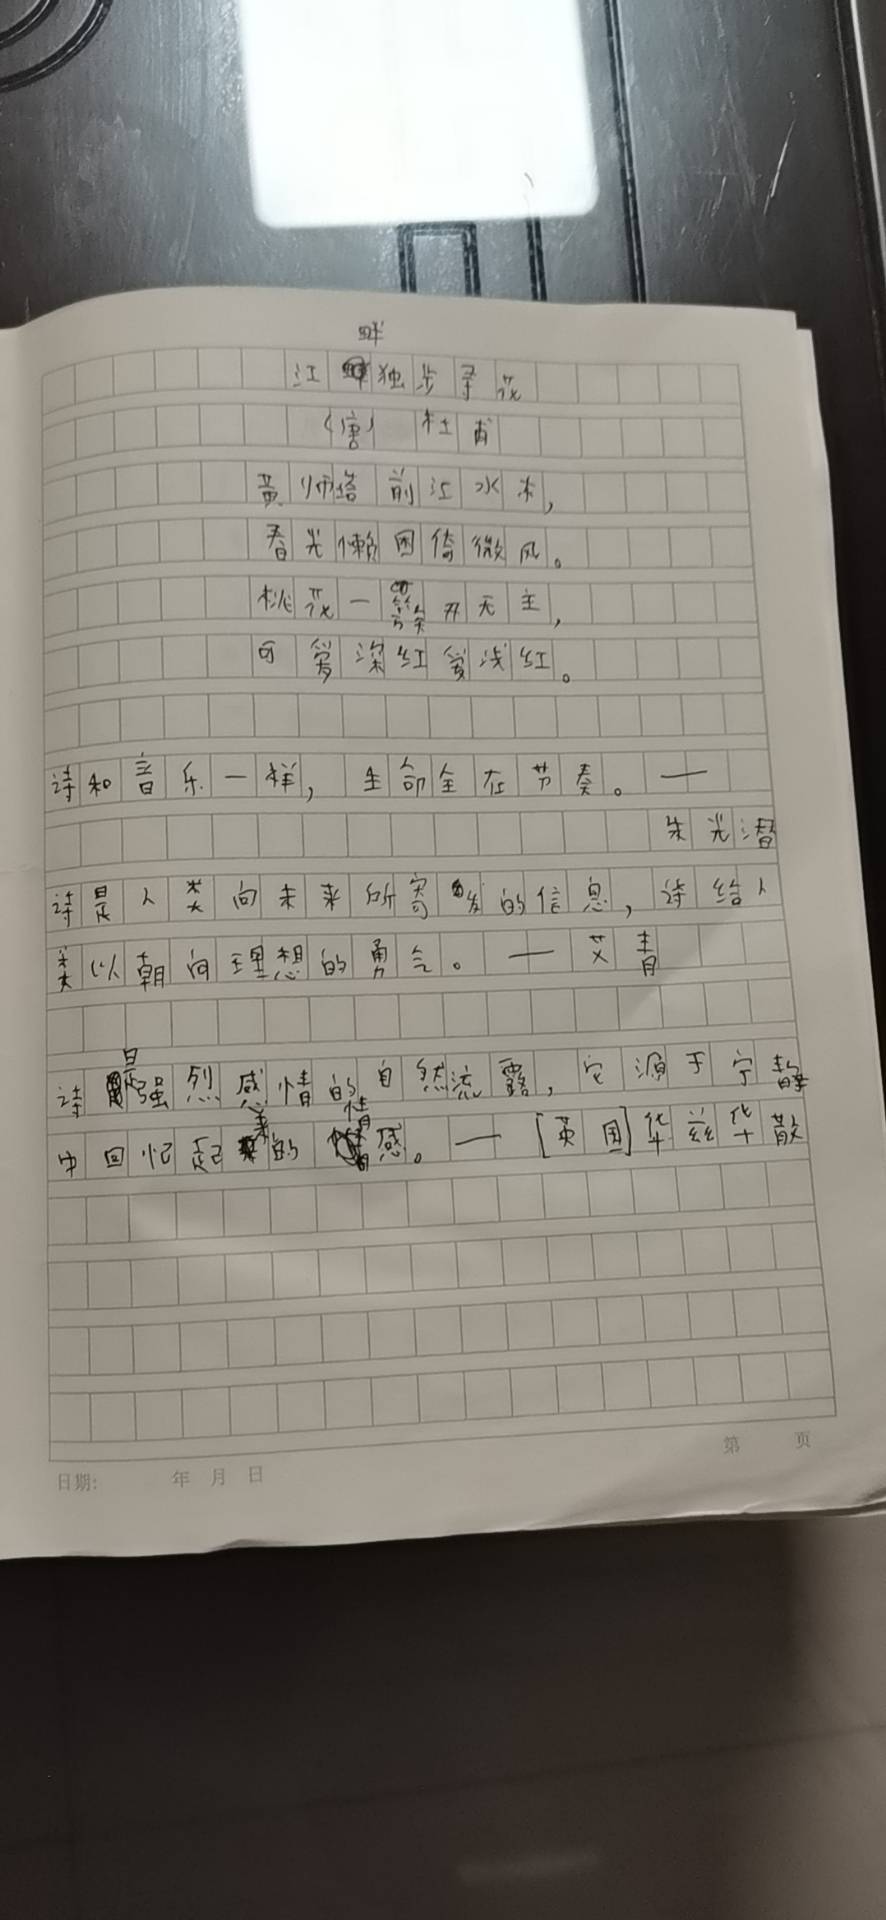 畔
江独步寻花
(唐) 杜甫
黄师塔前江水来,
春光懒困倚微风。
桃花一簇开无主,
可爱深红爱浅红。
诗和音乐一样, 生命全在节奏。——
朱光潜
诗是人类向未来所寄发的信息, 诗给人
类以朝向理想的勇气。——艾青
诗是强烈感情的自然流露, 它源于宁静
中回忆起来的情感。——[英国]华兹华散
日期: 年 月 日
第 页